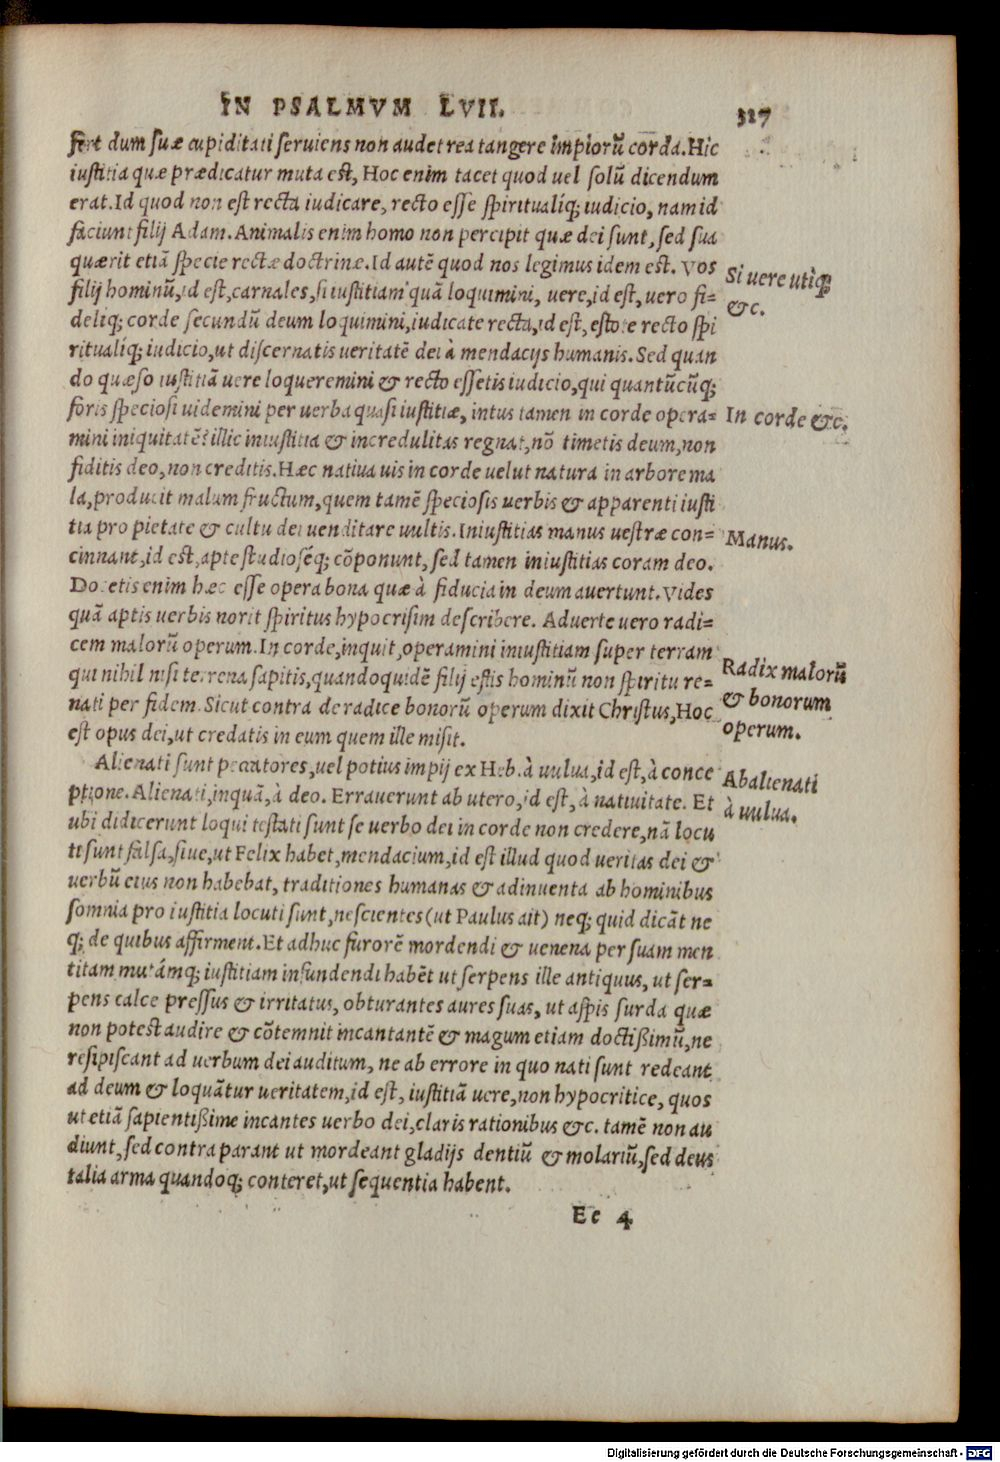 IN PSALMVM LVII. 327
fert dum suæ cupiditati seruiens non audet rea tangere impiorũ corda. Hic
iustitia quæ prædicatur muta est, Hoc enim tacet quod uel solũ dicendum
erat. Id quod non est recta iudicare, recto esse spiritualíq; iudicio, nam id
faciunt filij Adam. Animalis enim homo non percipit quæ dei sunt, sed sua
quærit etiã specie rectæ doctrinæ. Id autẽ quod nos legimus idem est. Vos
filij hominũ, id est, carnales, si iustitiam quã loquimini, uere, id est, uero fi=
deliq; corde secundũ deum loquimini, iudicate recta, id est, estote recto spi
ritualíq; iudicio, ut discernatis ueritatẽ dei à mendacijs humanis. Sed quan
do quæso iustitiã uere loqueremini & recto essetis iudicio, qui quantũcũq;
foris speciosi uidemini per uerba quasi iustitiæ, intus tamen in corde opera=
mini iniquitatẽ? illic iniustitia & incredulitas regnat, nõ timetis deum, non
fiditis deo, non creditis. Hæc natiua uis in corde uelut natura in arbore ma
la, producit malum fructum, quem tamẽ speciosis uerbis & apparenti iusti
tia pro pietate & cultu dei uenditare uultis. Iniustitias manus uestræ con=
cinnant, id est, apte studioséq; cõponunt, sed tamen iniustitias coram deo.
Docetis enim hæc esse opera bona quæ à fiducia in deum auertunt. Vides
quã aptis uerbis norit spiritus hypocrisim describere. Aduerte uero radi=
cem malorũ operum. In corde, inquit, operamini iniustitiam super terram
qui nihil nisi terrena sapitis, quandoquidẽ filij estis hominũ non spiritu re=
nati per fidem. Sicut contra de radice bonorũ operum dixit Christus, Hoc
est opus dei, ut credatis in eum quem ille misit.
Alienati sunt peccatores, uel potius impij ex Heb. à uulua, id est, à conce
ptione. Alienati, inquã, à deo. Errauerunt ab utero, id est, à natiuitate. Et
ubi didicerunt loqui testati sunt se uerbo dei in corde non credere, nã locu
ti sunt falsa, siue, ut Felix habet, mendacium, id est illud quod ueritas dei &
uerbũ eius non habebat, traditiones humanas & adinuenta ab hominibus
somnia pro iustitia locuti sunt, nescientes (ut Paulus ait) neq; quid dicãt ne
q; de quibus affirment. Et adhuc furorẽ mordendi & uenena per suam men
titam mutámq; iustitiam infundendi habẽt ut serpens ille antiquus, ut ser=
pens calce pressus & irritatus, obturantes aures suas, ut aspis surda quæ
non potest audire & cõtemnit incantantẽ & magum etiam doctißimũ, ne
resipiscant ad uerbum dei auditum, ne ab errore in quo nati sunt redeant
ad deum & loquãtur ueritatem, id est, iustitiã uere, non hypocritice, quos
ut etiã sapientißime incantes uerbo dei, claris rationibus &c. tamẽ non au
diunt, sed contra parant ut mordeant gladijs dentiũ & molariũ, sed deus
talia arma quandoq; conteret, ut sequentia habent.
Ee 4
Si uere utiq;
&c.
In corde &c.
Manus.
Radix malorũ
& bonorum
operum.
Abalienati
à uulua.
Digitalisierung gefördert durch die Deutsche Forschungsgemeinschaft - DFG